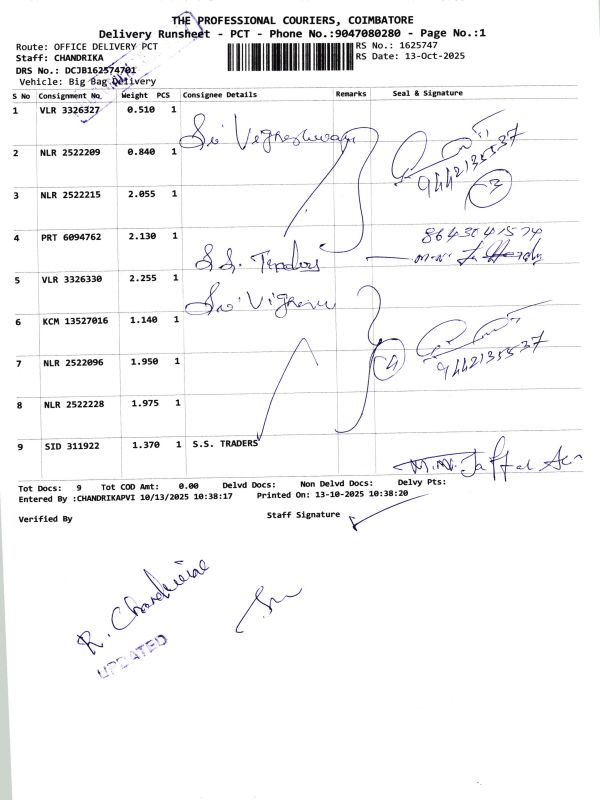 THE PROFESSIONAL COURIERS, COIMBATORE
Delivery Runsheet - PCT - Phone No.:9047080280 - Page No.:1
Route: OFFICE DELIVERY PCT RS No.: 1625747
Staff: CHANDRIKA RS Date: 13-Oct-2025
DRS No.: DCJB162574701
Vehicle: Big Bag Delivery
S No Consignment No. Weight PCS Consignee Details Remarks Seal & Signature
1 VLR 3326327 0.510 1 Sri Vigneshwara
2 NLR 2522209 0.840 1 9442135537
3 NLR 2522215 2.055 1 3
4 PRT 6094762 2.130 1 S.S. Traders 8643041574
5 VLR 3326330 2.255 1 Sri Vignesw
6 KCM 13527016 1.140 1
7 NLR 2522096 1.950 1 4 9442135537
8 NLR 2522228 1.975 1
9 SID 311922 1.370 1 S.S. TRADERS
M.N. Jaffar
Tot Docs: 9 Tot COD Amt: 0.00 Delvd Docs: Non Delvd Docs: Delvy Pts:
Entered By :CHANDRIKAPVI 10/13/2025 10:38:17 Printed On: 13-10-2025 10:38:20
Verified By Staff Signature
R. Chandrika
UPDATED